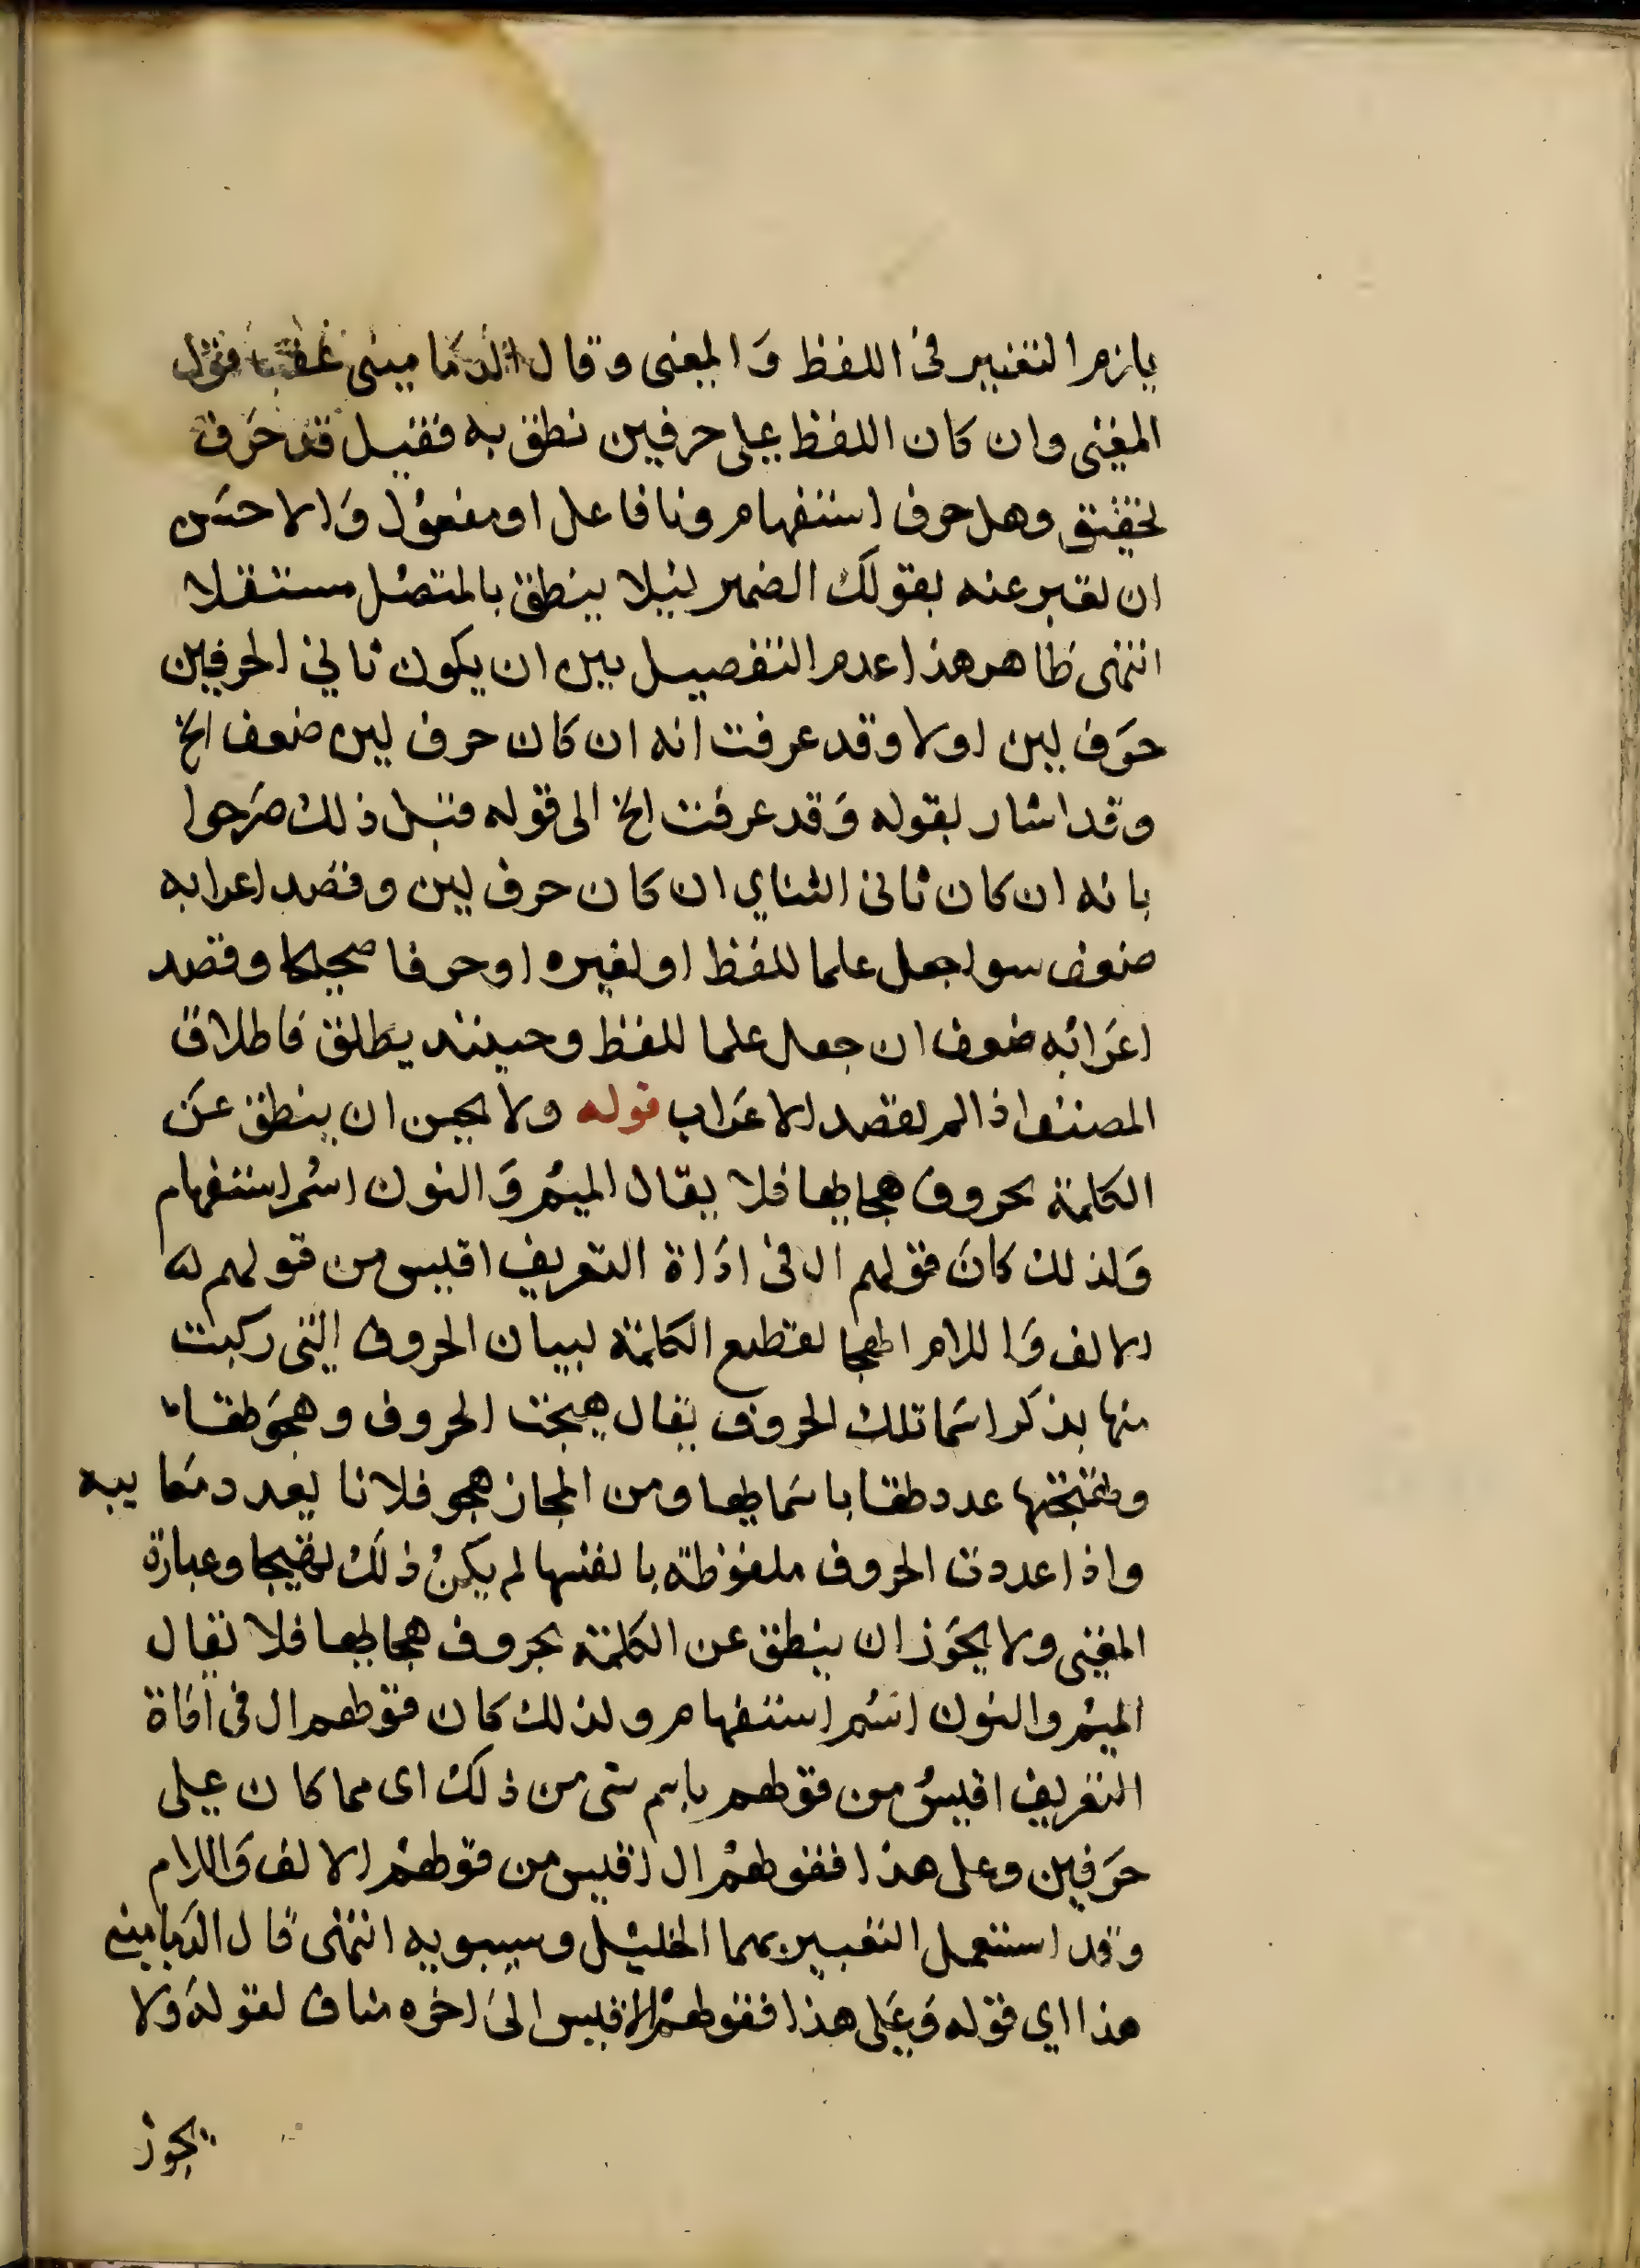 يلزم التغيير فى اللفظ وَالمعنى وقال الدمامينى عقب قول
المغنى وان كان اللفظ على حرفين نطق به فقيل قد حَرف
تحقيق وهل حرف استفهام ونا فاعل او مفعول وَالاحسَن
ان تعبر عنه بقولك الضمير ليلا ينطق بالمتصل مستقلا
انتهى ظاهر هذا عدم التفصيل بين ان يكون ثاني الحرفين
حرَف لين اولا وقد عرفت انه ان كان حرف لين ضعف الخ
وقد اشار بقوله وَقد عرفت الخ الى قوله قبل ذلك صَرحوا
بانه ان كان ثانى الثناي ان كان حرف لين وقصد اعرابه
ضعف سوا جعل علما للفظ او لغيره او حرفا صحيحا وقصد
اعَرابه ضعف ان جعل علما للفظ وحينئذ يطلق فاطلاق
المصنف اذا لم يقصد الاعَراب قوله ولا يحسن ان ينطق عَن
الكلمة بحروف هجايها فلا يقال الميم وَالنون اسم استفهام
وَلذلك كانَ قولهم ال فى ادَاة التعريف اقيس من قولهم له
الالف وَاللام الهجا تقطيع الكلمة لبيان الحروف التى ركبت
منها بذكر اسَما تلك الحروف يقال هجيت الحروف وهجَوتها
وتهجيتها عددتها باسَمايها ومن المجاز هجو فلانا يعدد معَايبه
واذا عددت الحروف ملفوظة بانفسها لم يكن ذلك تهجيا وعبارة
المغنى ولا يجَوز ان ينطق عن الكلمة بحروف هجايها فلا تقال
الميم والنون اسم استفهام ولذلك كان قولهم ال فى اداة
التعريف اقيسُ من قولهم باسم شى من ذلك اى مما كان على
حرَفين وعلى هذا فقولهم ال اقيس من قولهم الالف وَاللام
وقد استعمل التعبير بهما الخليل وسيبويه انتهى قال الدَمامينى
هذا اي قوله وَعَلى هذا فقولهم ال اقيس الى اخره مناف لقوله وَلا
يجوز